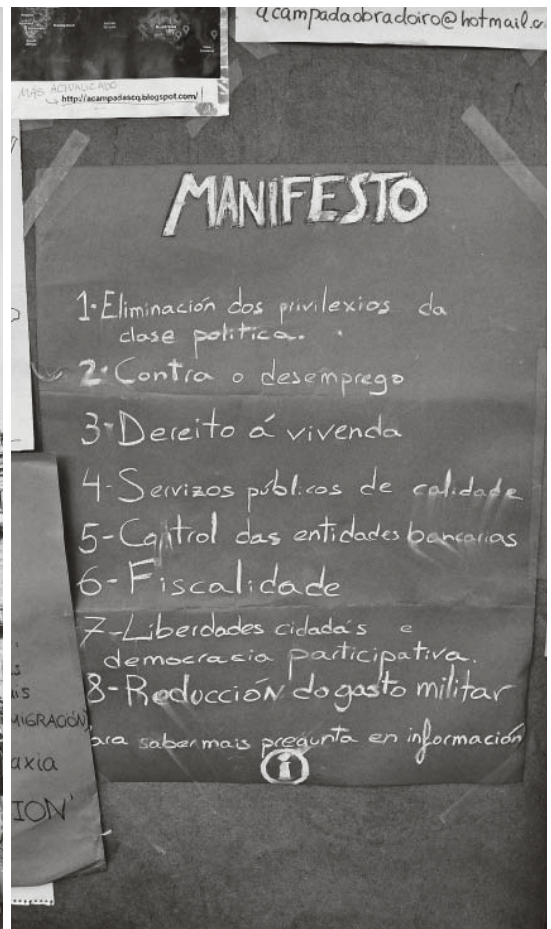 acampadaobradoiro@hotmail.c
MÁS ACTUALIZADO
http://acampadascq.blogspot.com/
MANIFESTO
1-Eliminación dos privilexios da
clase política.
2-Contra o desemprego
3-Dereito á vivenda
4-Servizos públicos de calidade
5-Control das entidades bancarias
6-Fiscalidade
7-Liberdades cidadás e
democracia participativa.
8-Reducción do gasto militar
ara saber mais pregunta en información
i
MIGRACIÓN
axia
ION